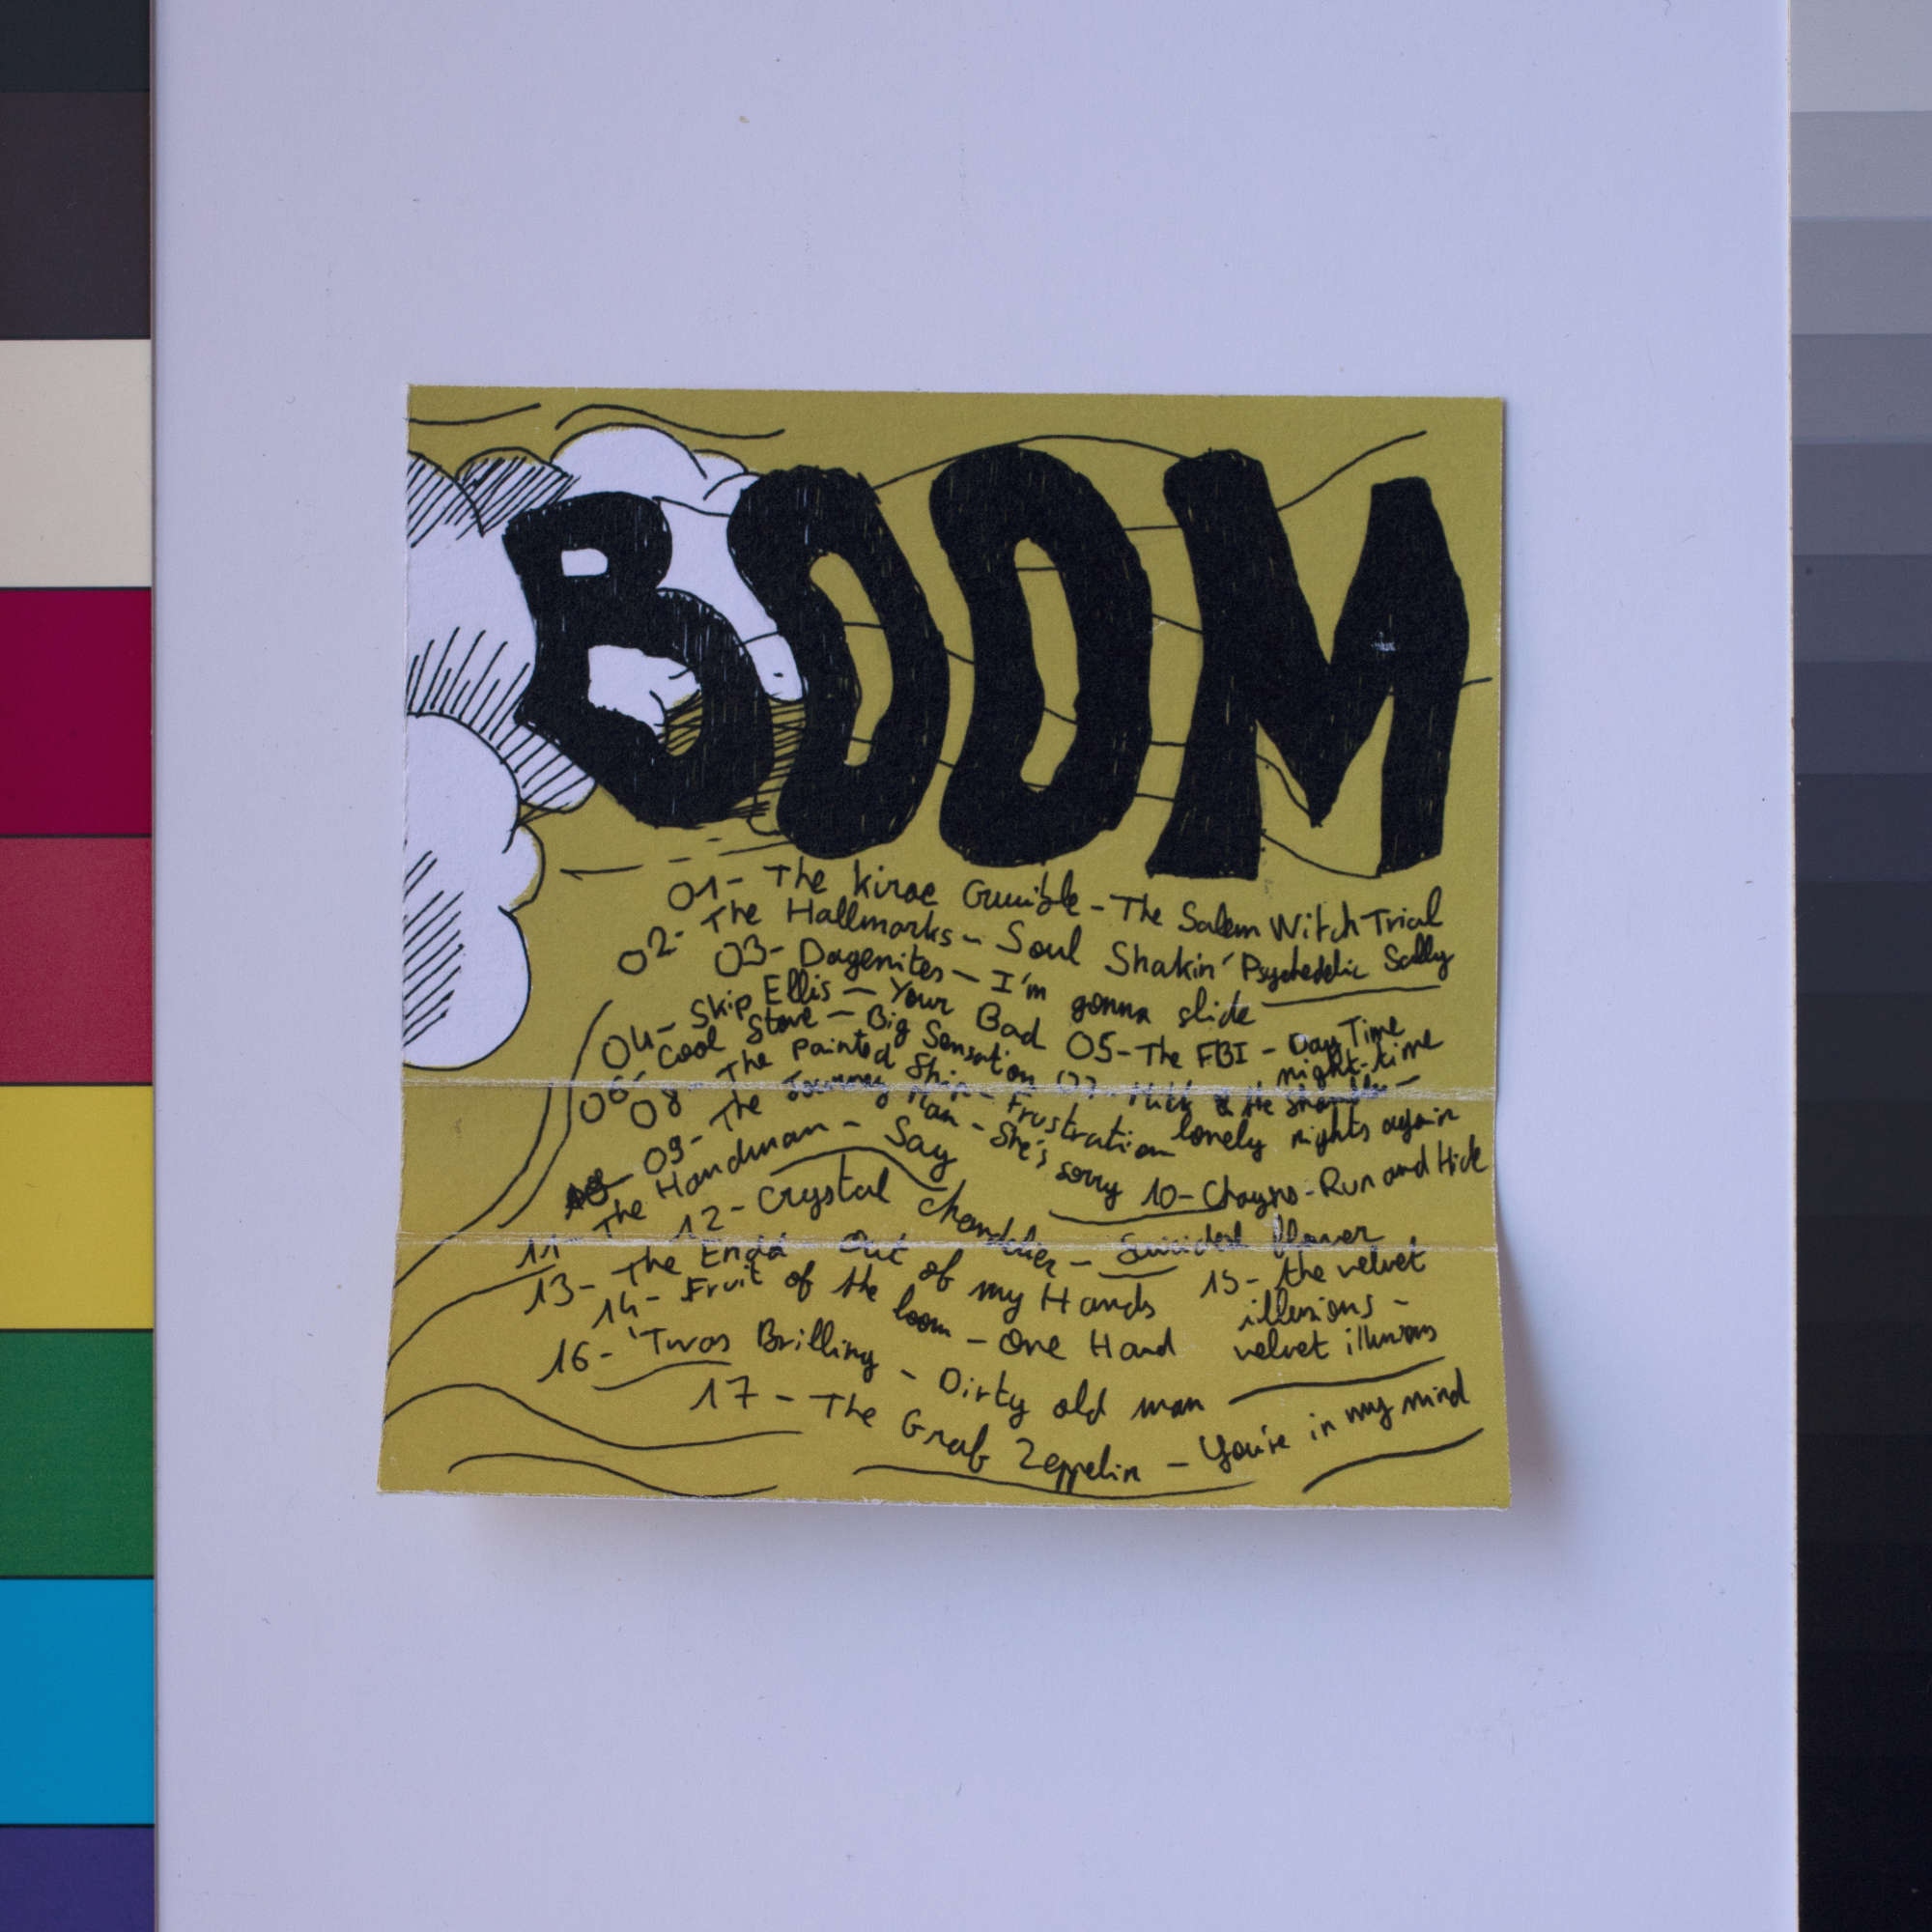 BOOM
01- The Kirae Crumble - The Salem Witch Trial
02- The Hallmarks - Soul Shakin' Psychedelic Sally
03- Dagenites - I'm gonna slide
04- Skip Ellis - Your Bad
05- The FBI - Day Time
night-time
06- Cool Stove - Big Sensation
07- & the
lonely nights again
08- The Painted Ship - Frustration
09- The Journey Man - She's sorry
10- Chayns - Run and Hide
11- The Handman - Say
12- Crystal Chandelier - Suicidal flower
13- The Endd - Out of my Hands
14- Fruit of the loom - One Hand
15- the velvet
illusions -
velvet illusions
16- 'Twas Brilling - Dirty old man
17- The Graf Zeppelin - You're in my mind